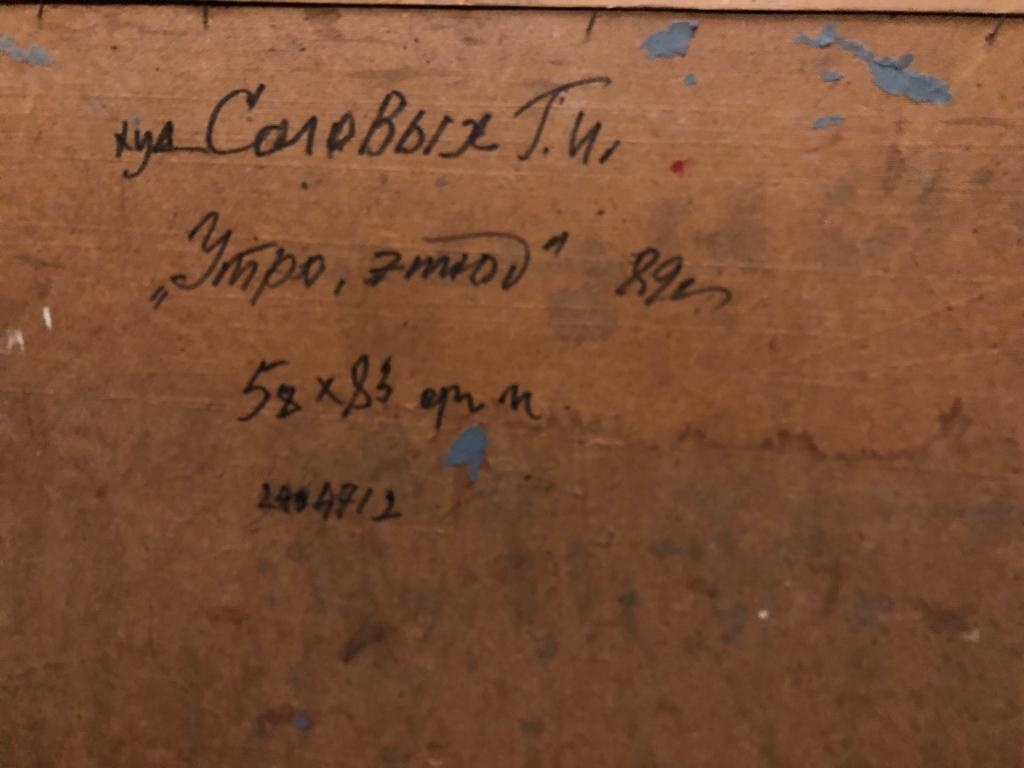 худ Соловых Г.И.
„Утро, этюд" 89г.
58 x 83 орг. м.